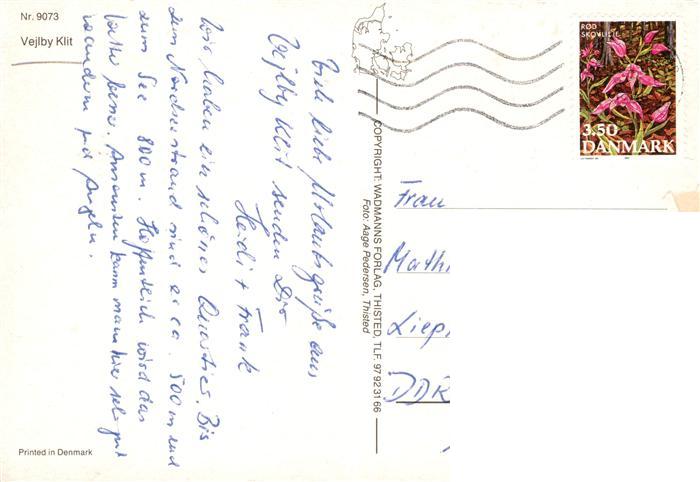 Nr. 9073
Vejlby Klit
Viele liebe Urlaubsgrüße aus
Vejlby Klit senden Dir
Heidi + Frank
Wir haben ein schönes Quartier. Bis
zum Nordseestrand sind es ca. 500 m und
zum See 800 m. Hoffentlich wird das
Wetter besser. Ansonsten kann man hier sehr gut
wandern und Angeln.
COPYRIGHT: WADMANNS FORLAG, THISTED, TLF. 97 92 31 66
Foto: Aage Pedersen, Thisted
RØD
SKOVLILJE
3.50
DANMARK
Frau
Math
Liep
DDR
Printed in Denmark